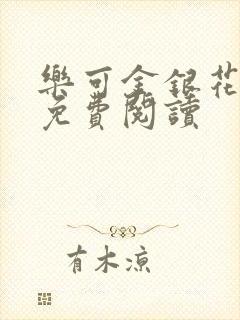 樂可金銀花
免費閱讀
有木涼